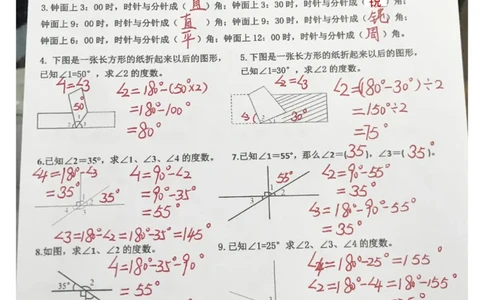 3.钟面上 3：00 时，时针与分针成（ 直 ）角；钟面上 3：30 时，时针与分针成（ 锐 ）角；
钟面上 9：00 时，时针与分针成（ 直 ）角；钟面上 9：30 时，时针与分针成（ 钝 ）角；
钟面上 6：00 时，时针与分针成（ 平 ）角；钟面上 12：00 时，时针与分针成（ 周 ）角。
4. 下图是一张长方形的纸折起来以后的图形，
已知∠1=50°，求∠2 的度数。
∠1=∠3
∠2=180°-(50°×2)
=180°-100°
=80°
50°
1
2
3
5.下图是一张长方形的纸折起来以后的图形，
已知∠1=30°，求∠2 的度数。
∠2=∠3
∠2=(180°-30°)÷2
=150°÷2
=75°
1
2
6.已知∠2=35°，求∠1、∠3、∠4 的度数。
∠4=180°-∠3
=35°
∠1=90°-∠2
=90°-35°
=55°
35°
∠3=180°-∠2=180°-35°=145°
7.已知∠1=55°，那么∠2=( 35°)，∠3=( 35°)。
55°
∠2=90°-55°
=35°
∠3=180°-90°-55°
=35°
8.如图，求∠1、∠2 的度数。
∠1=180°-35°-90°
=55°
35°
2
9.已知∠1=25° 求∠2、∠3、∠4 的度数。
∠4=180°-25°=155°
∠2=180°-∠4=180°-155°